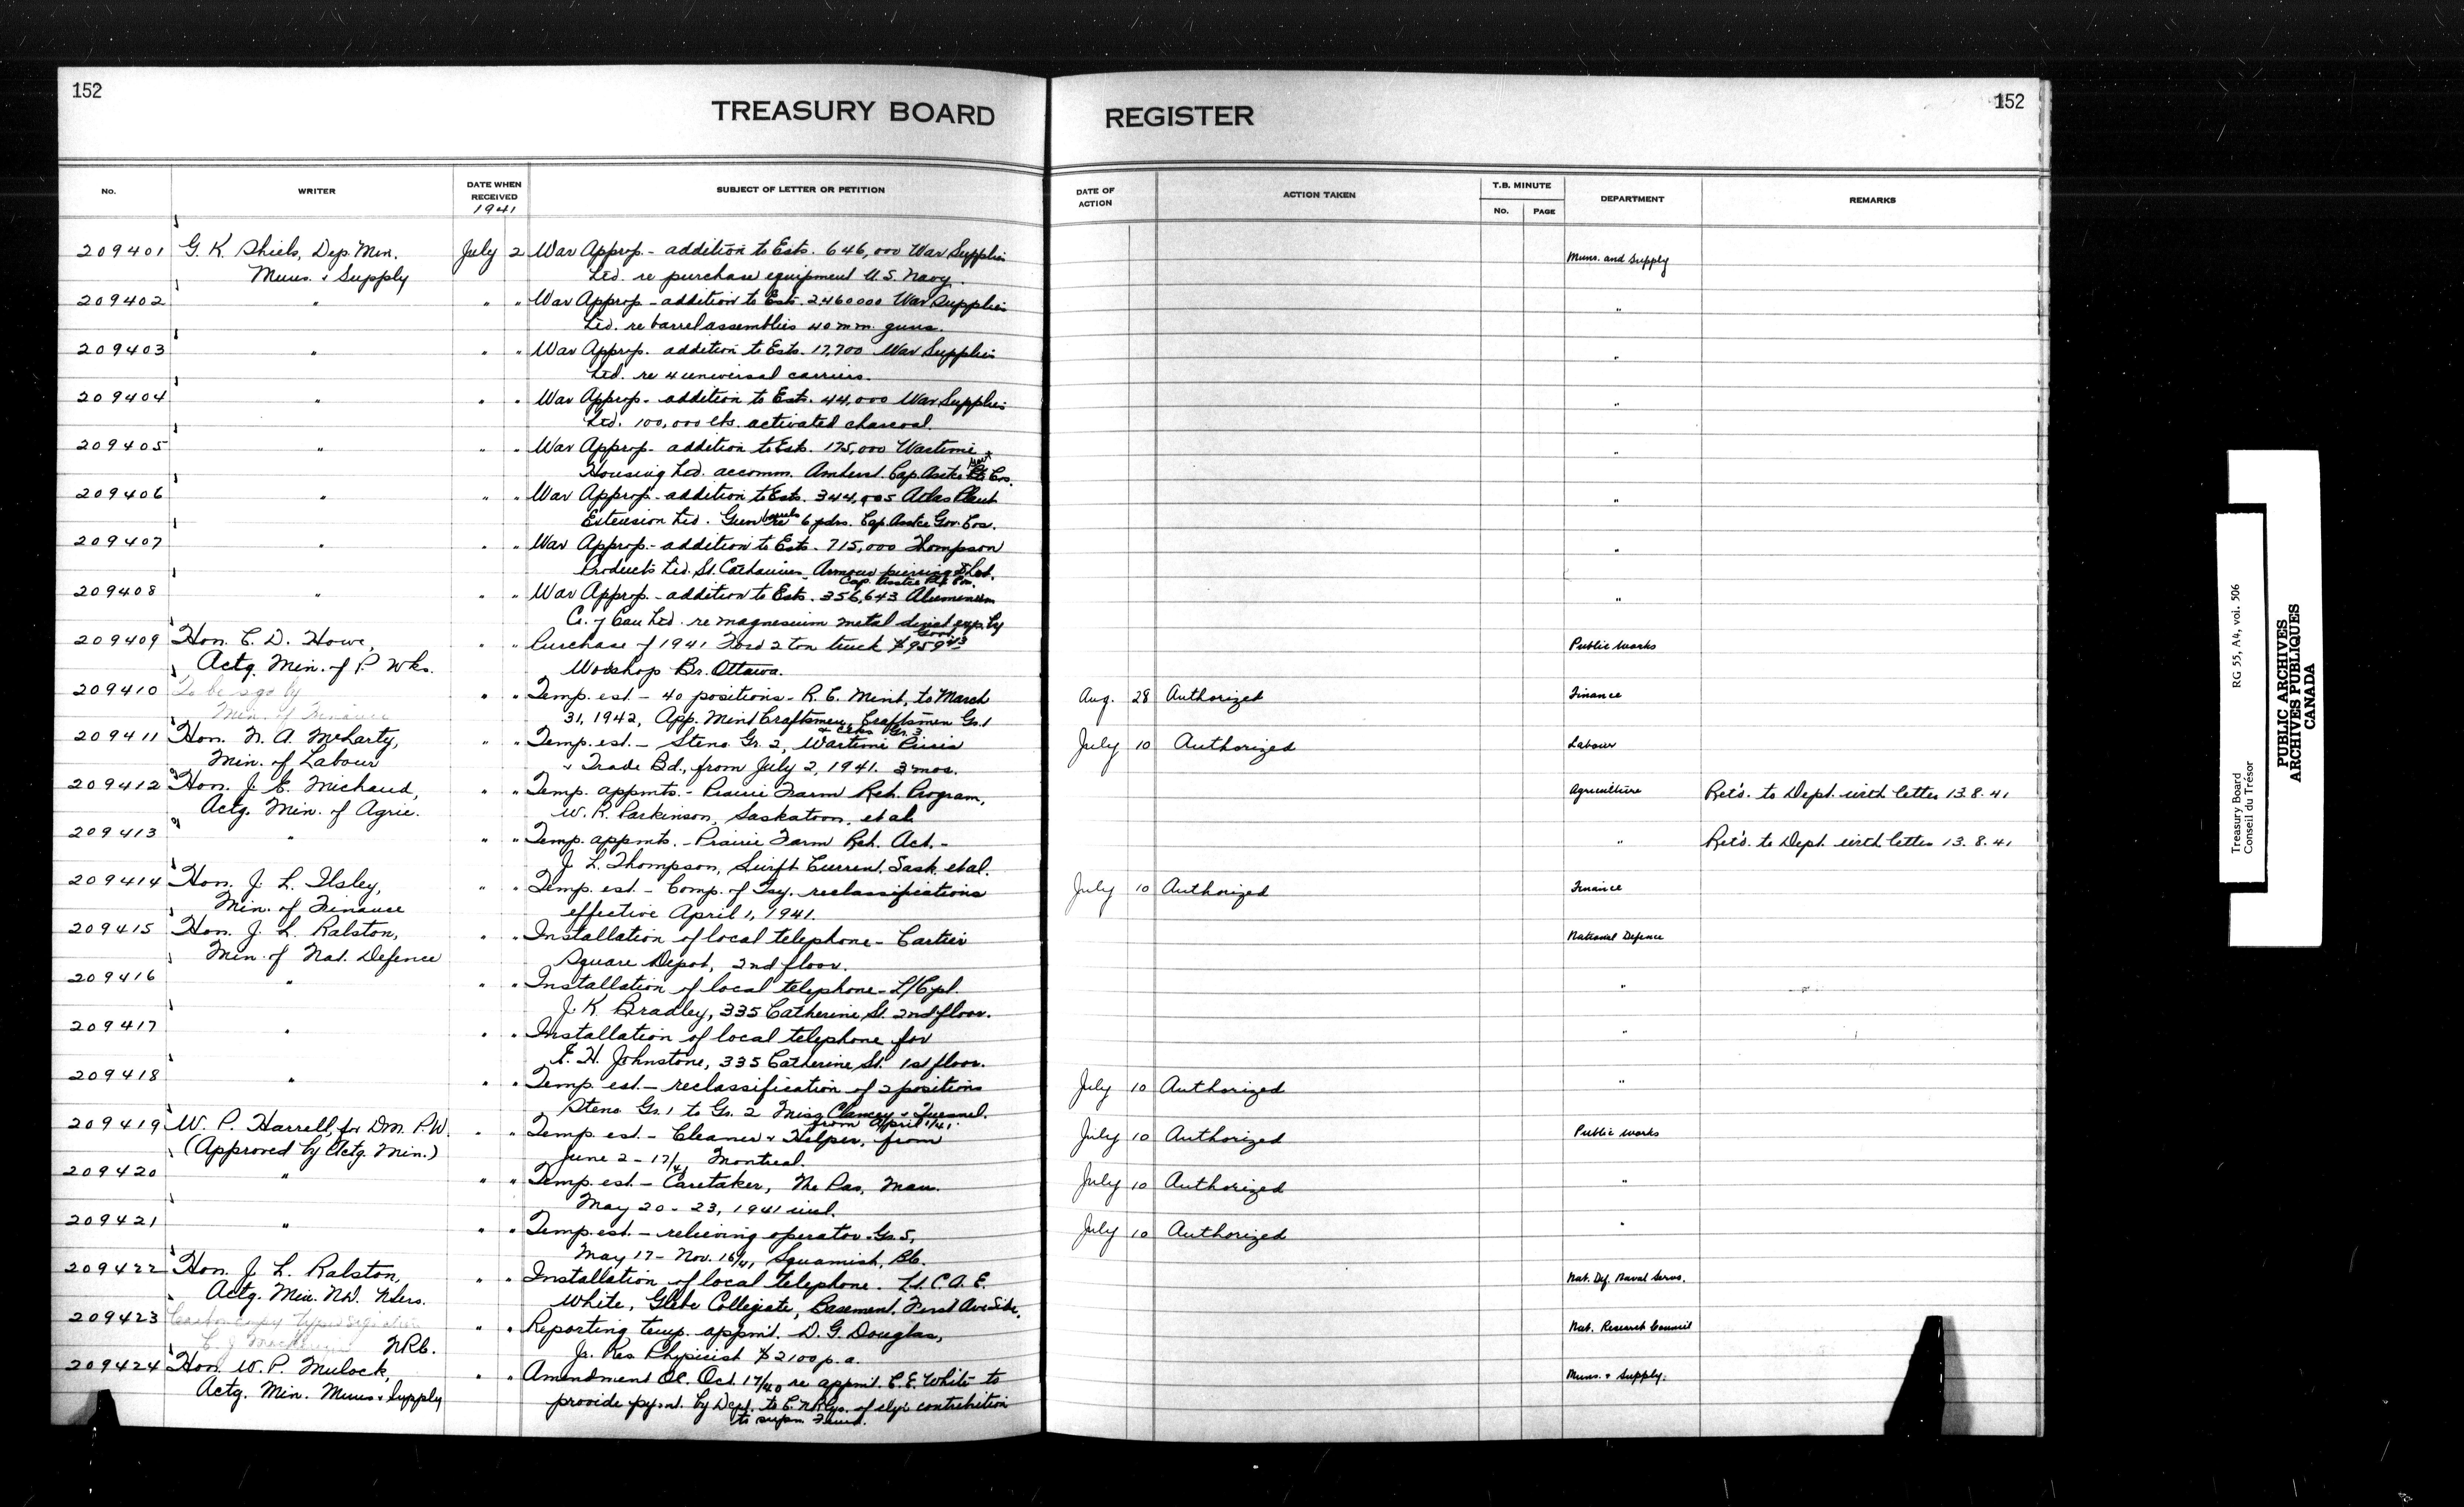 152
TREASURY BOARD
No.
WRITER
DATE WHEN
RECEIVED
1941
SUBJECT OF LETTER OR PETITION
209401 G. K. Shiels, Dep. Min. July 2 War Approp - addition to Ests. 646,000 War Supplies
Muns. & Supply Ltd. re purchase equipment U.S. Navy.
209402 " " " War Approp - addition to Ests. 2460000 War Supplies
Ltd. re barrel assemblies 40 mm. guns.
209403 " " " War Approp. addition to Ests. 17,700 War Supplies
Ltd. re 4 universal carriers.
209404 " " " War Approp - addition to Ests. 44,000 War Supplies
Ltd. 100,000 lbs. activated charcoal.
209405 " " " War Approp - addition to Ests. 175,000 Wartime
Housing Ltd. accomm. Amherst. Cap. Asstce
209406 " " " War Approp - addition to Ests. Atlas Plant
Extension Ltd. Gun barrels 6 pdrs. Cap. Asstce Gov. Cos.
209407 " " " War Approp - addition to Ests. 715,000 Thompson
Products Ltd. St. Catharines Armour piercing Shot.
Cap. Asstce
209408 " " " War Approp - addition to Ests. 356,643 Aluminium
Co. of Can Ltd. re magnesium metal
209409 Hon. C. D. Howe, " " Purchase of 1941 Ford 2 ton truck $959
Actg. Min. of P. Wks. Workshop Br. Ottawa.
209410 To be sgd by " " Temp. est - 40 positions - R. C. Mint, to March
Min. of Finance 31, 1942, App. Mint Craftsmen, Craftsmen Gr. 1
& Clks Gr. 3
209411 Hon. N. A. McLarty, " " Temp. est. - Steno. Gr. 2, Wartime Prices
Min. of Labour & Trade Bd., from July 2, 1941. 3 mos.
209412 Hon. J. E. Michaud, " " Temp. appmts. - Prairie Farm Reh. Program,
Actg. Min. of Agric. W. R. Parkinson, Saskatoon, et al.
209413 " " " Temp. appmts. - Prairie Farm Reh. Act. -
J. L. Thompson, Swift Current, Sask. et al.
209414 Hon. J. L. Ilsley, " " Temp. est - Comp. of Tsy. reclassifications
Min. of Finance effective April 1, 1941.
209415 Hon. J. L. Ralston, " " Installation of local telephone - Cartier
Min. of Nat. Defence Square Depot, 2nd floor.
209416 " " " Installation of local telephone - L/Cpl.
J. K. Bradley, 335 Catherine St. 2nd floor.
209417 " " " Installation of local telephone for
E. H. Johnstone, 335 Catherine St. 1st floor.
209418 " " " Temp. est - reclassification of 2 positions
Steno Gr. 1 to Gr. 2 Miss Clancey &
from April 1/41.
209419 W. P. Harrell, for D.M. P.W. " " Temp. est - Cleaner & Helper, from
(Approved by Actg. Min.) June 2 - 17/41 Montreal.
209420 " " " Temp. est - Caretaker, The Pas, Man.
May 20 - 23, 1941 incl.
209421 " " " Temp. est - relieving operator Gr. 5,
May 17 - Nov. 16/41, Squamish, B.C.
209422 Hon. J. L. Ralston, " " Installation of local telephone - Lt. C. A. E.
Actg. Min. N.D. N. Sers. White, Glebe Collegiate, Basement, First Ave Side.
209423 Carbon copy typed signature " " Reporting temp. appmt. D. G. Douglas,
C. J. Mackenzie NRC. Jr. Res Physicist $2100 p.a.
209424 Hon. W. P. Mulock, " " Amendment OC. Oct. 17/40 re appmt. C. E. White to
Actg. Min. Muns & Supply provide pymt. by Dept. to C. N. Rlys. of contribution
to supn. Fund.
REGISTER
152
DATE OF
ACTION
ACTION TAKEN
T.B. MINUTE
No.
PAGE
DEPARTMENT
REMARKS
Muns. and Supply
"
"
"
"
"
"
"
Public Works
Aug. 28 Authorized Finance
July 10 Authorized Labour
Agriculture Ret'd. to Dept. with letter 13.8.41
" Ret'd. to Dept. with letter 13.8.41
July 10 Authorized Finance
National Defence
"
"
July 10 Authorized "
July 10 Authorized Public Works
July 10 Authorized "
July 10 Authorized "
Nat. Def. Naval Servs.
Nat. Research Council
Muns. & Supply.
Treasury Board RG 55, A4, vol. 506
Conseil du Trésor
PUBLIC ARCHIVES
ARCHIVES PUBLIQUES
CANADA